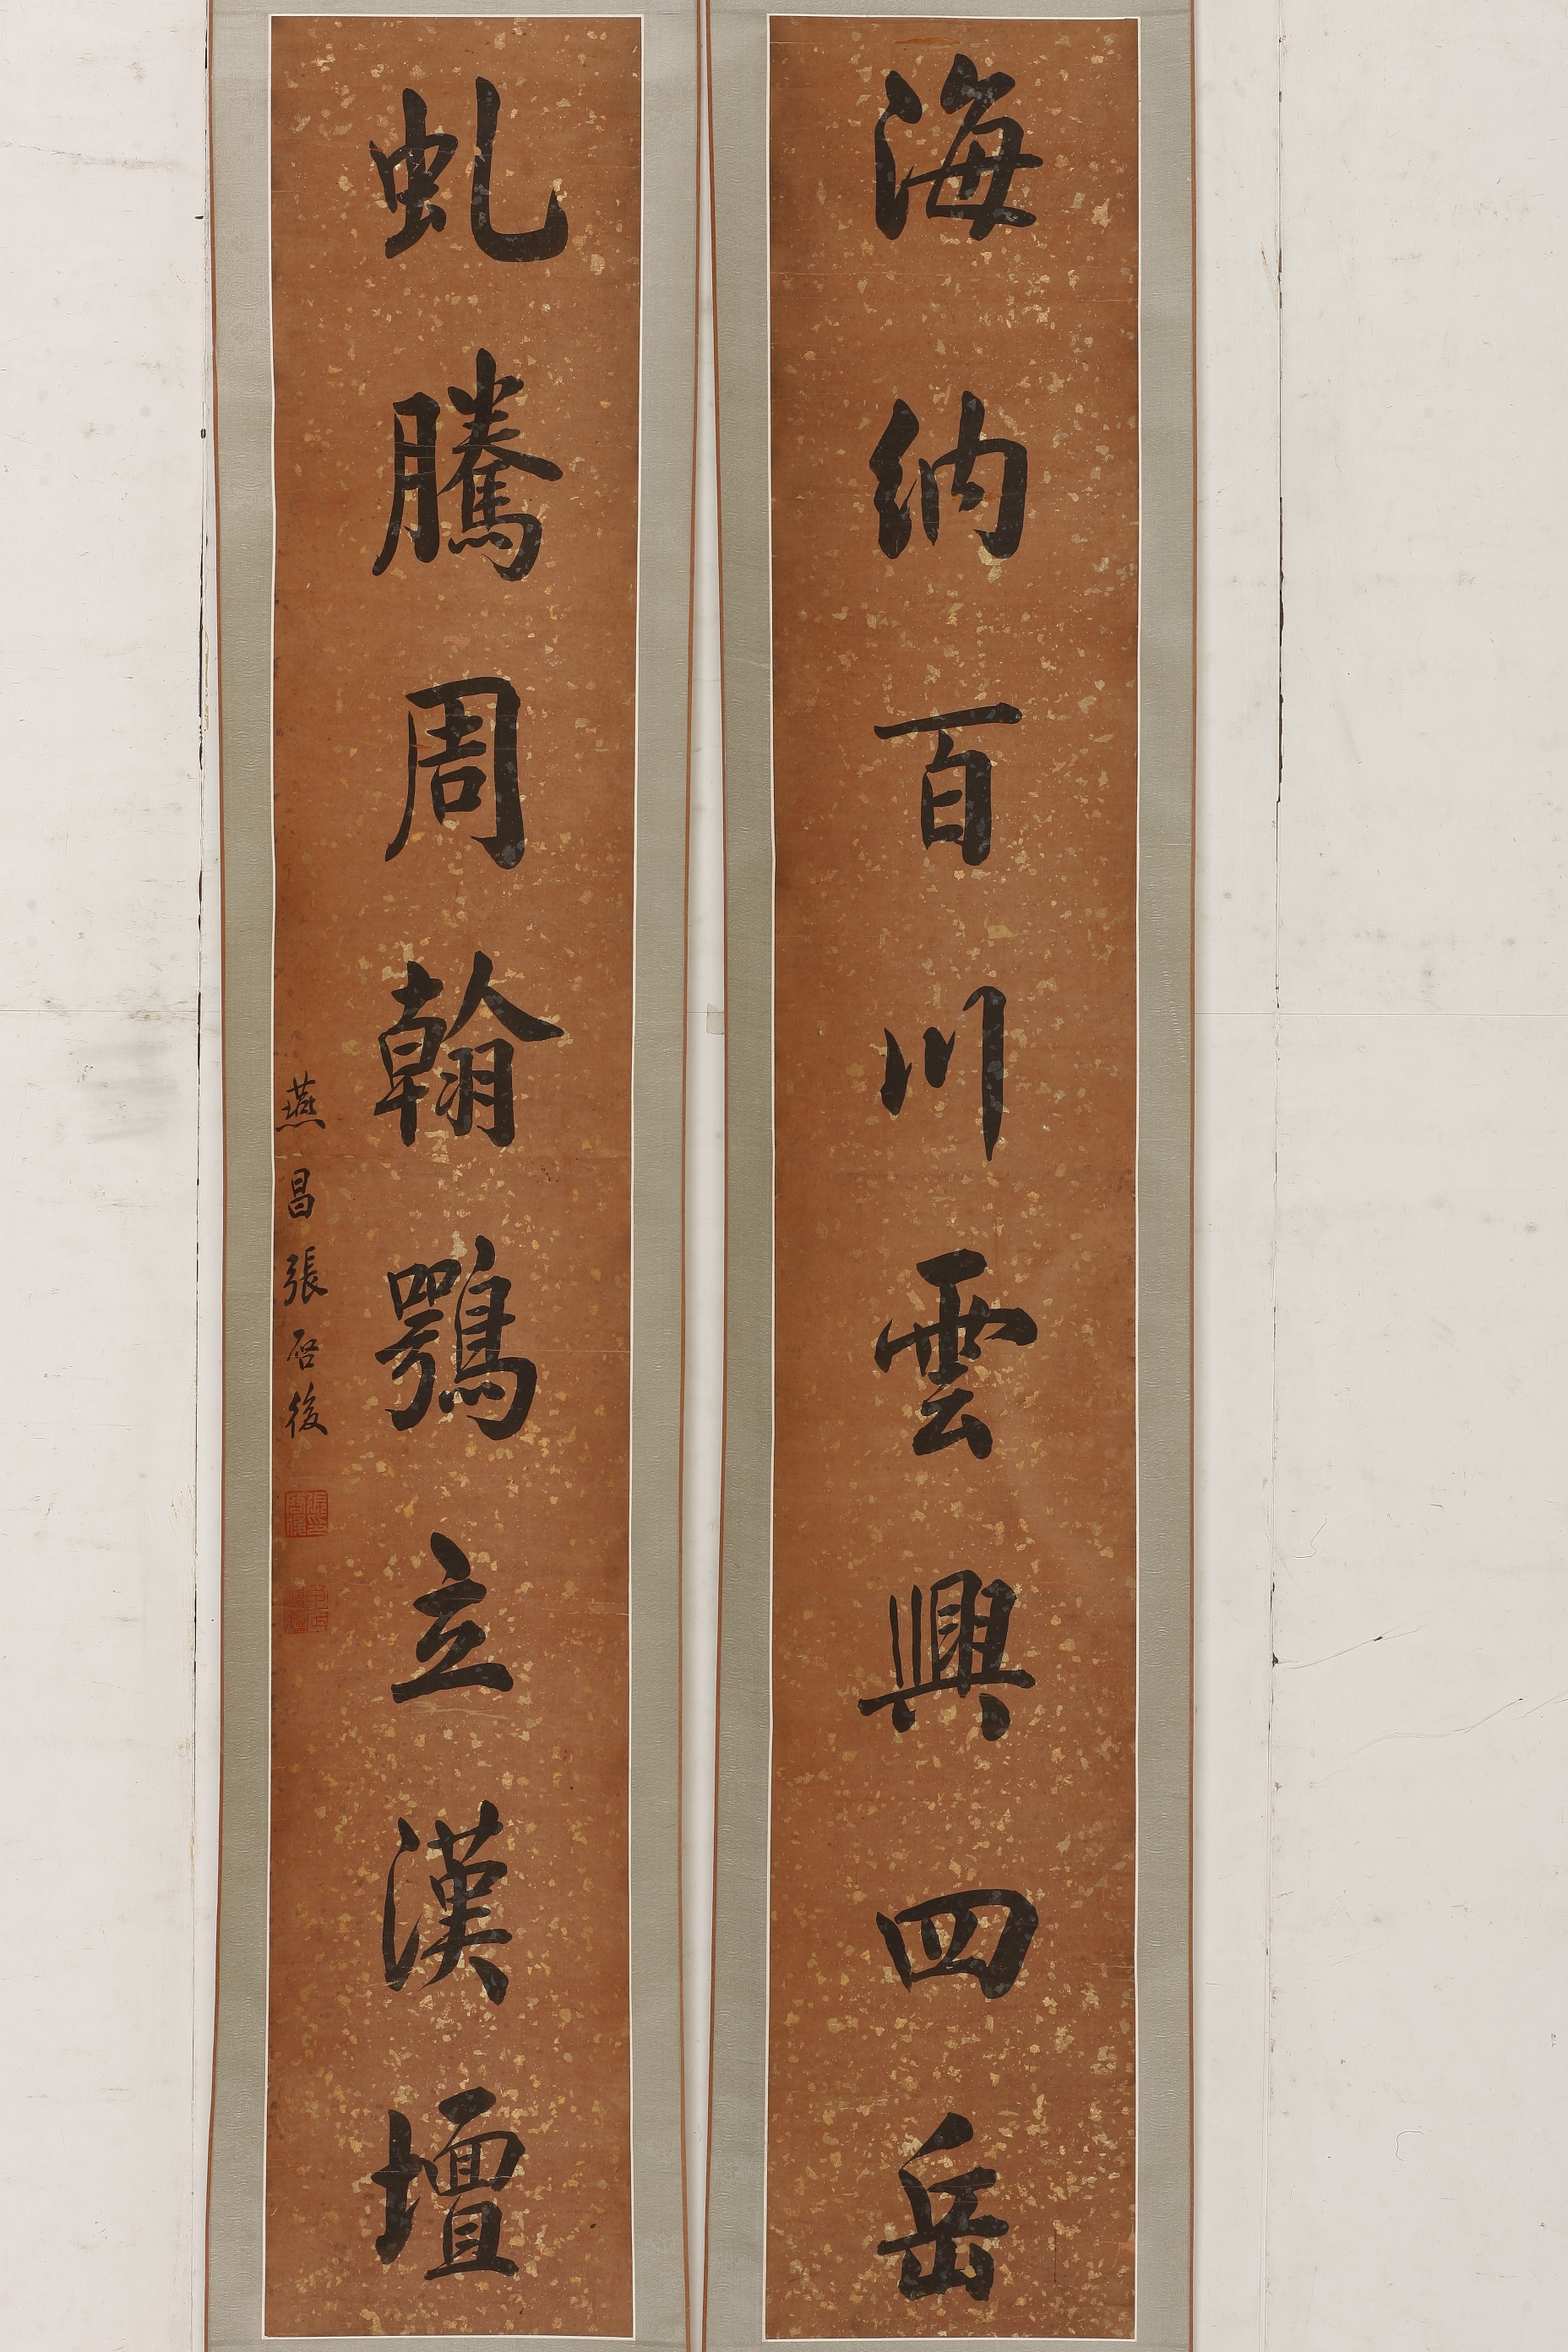 海納百川雲興四岳
虬騰周翰鶚立漢壇
燕昌張啓後